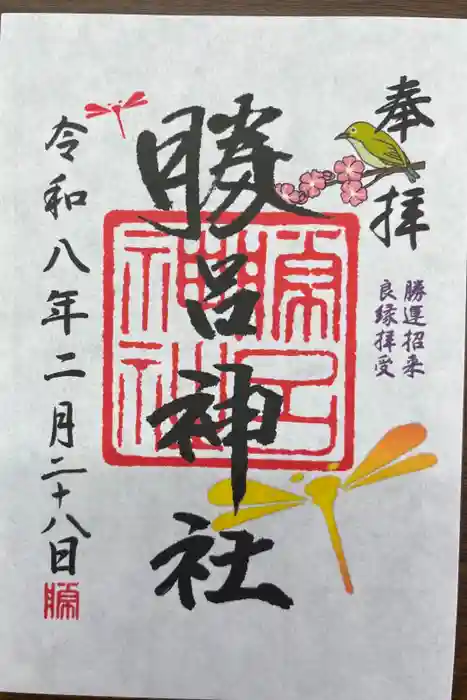 奉拝
勝運招来
良縁拝受
勝呂神社
令和八年二月二十八日